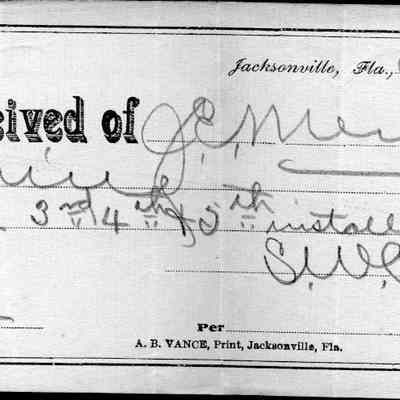 Jacksonville, Fla.,
ceived of J. E. Mer
3rd 4th & 5th install
S. W.
Per
A. B. VANCE, Print, Jacksonville, Fla.